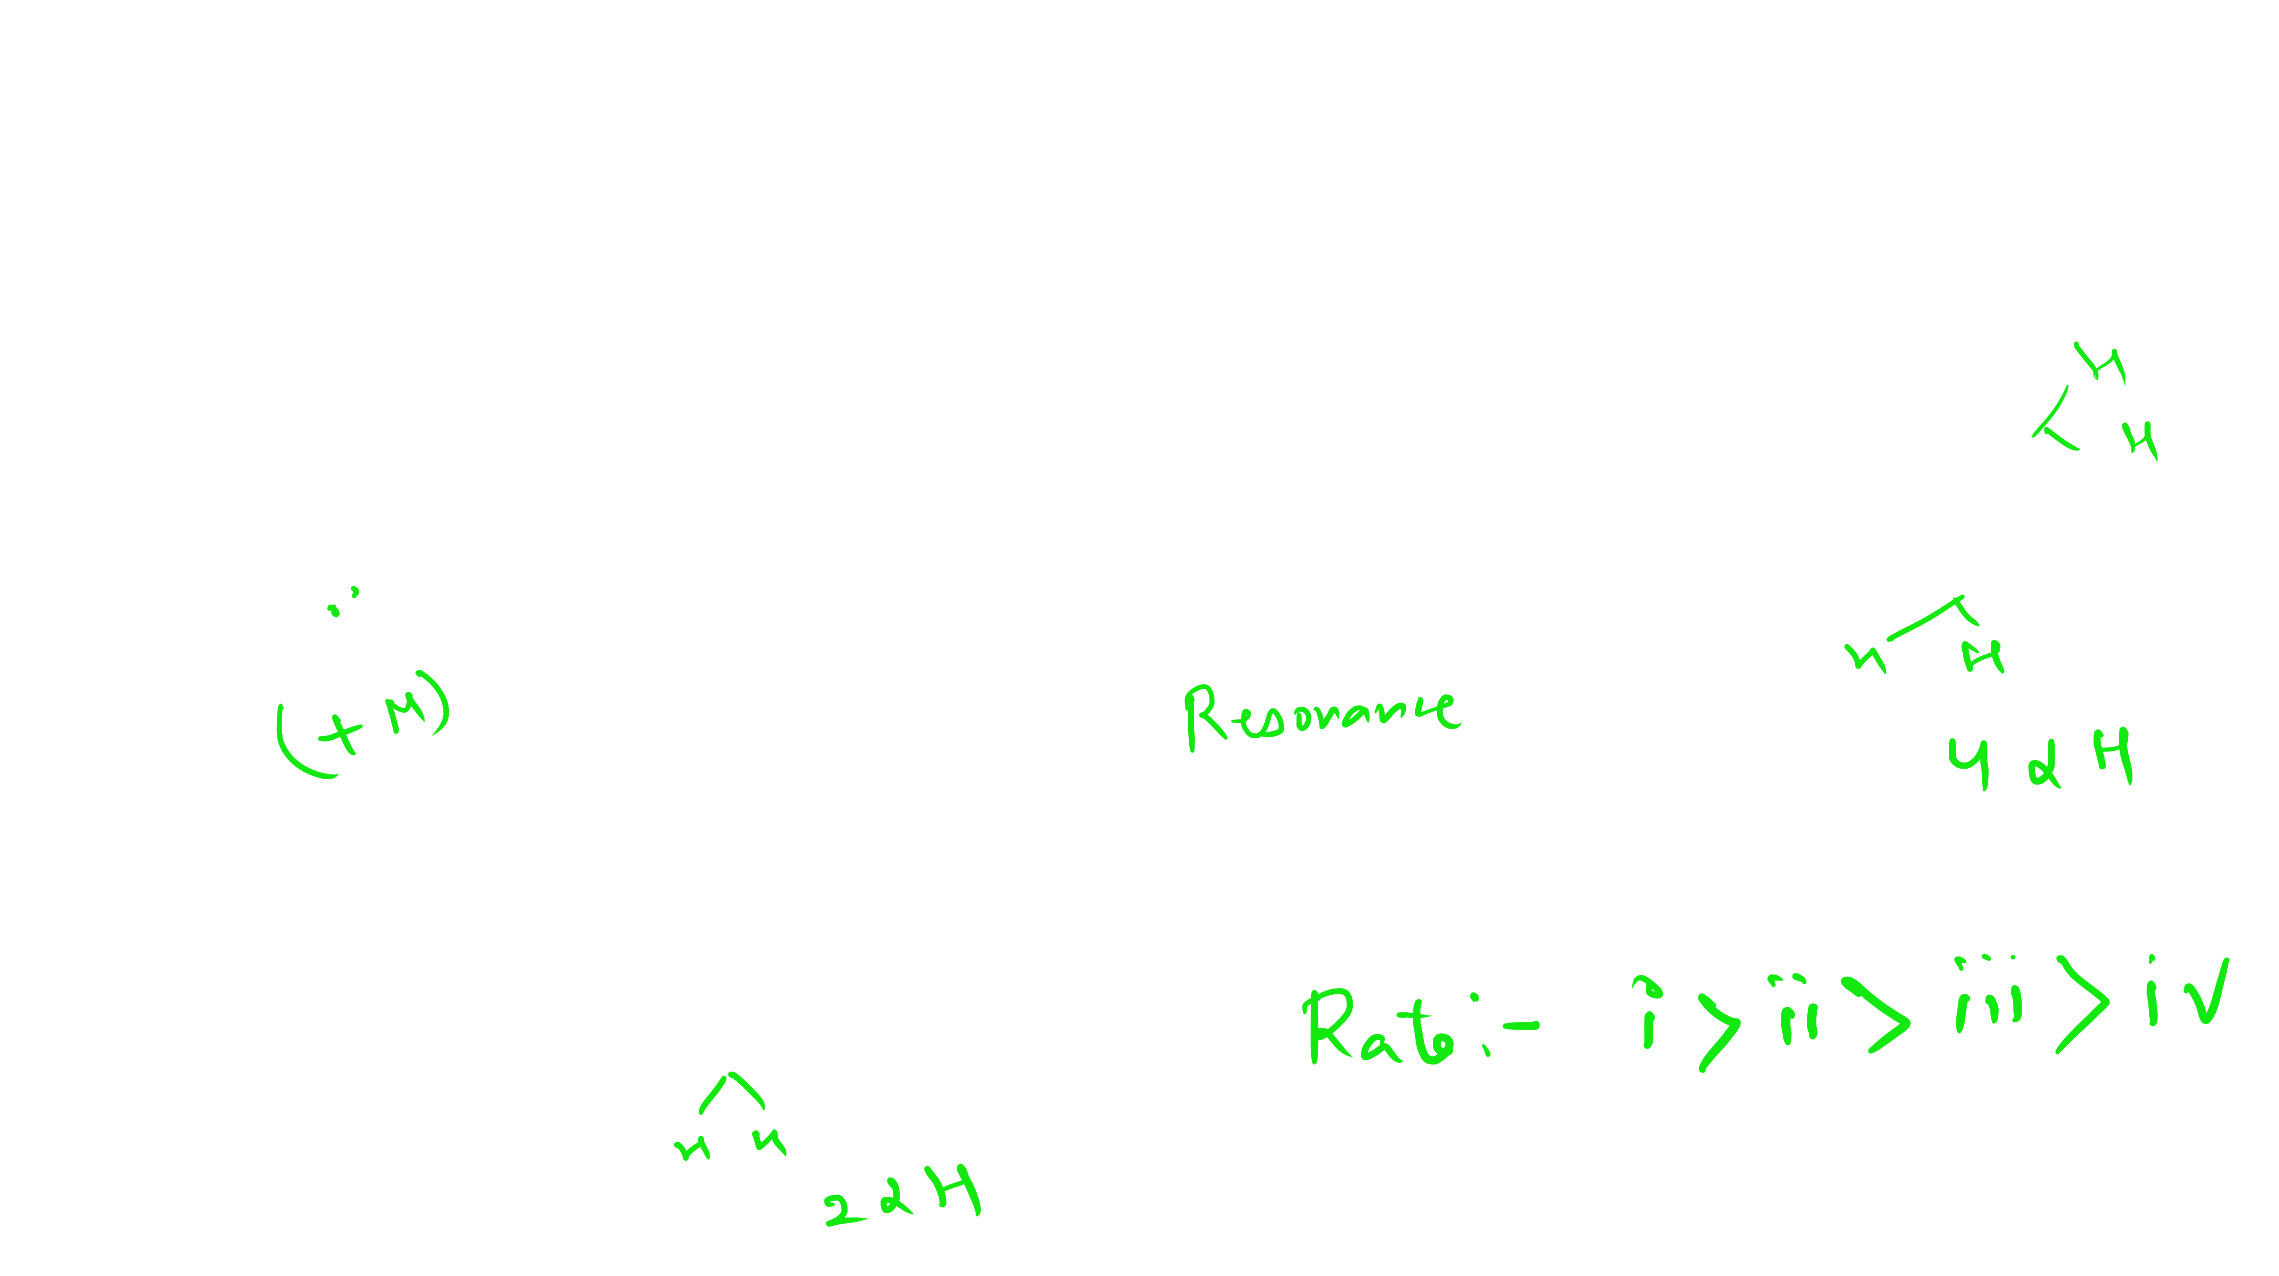 H
H
H H
(+M)
Resonance
4 α H
Rate :- i > ii > iii > iv
H H
2 α H